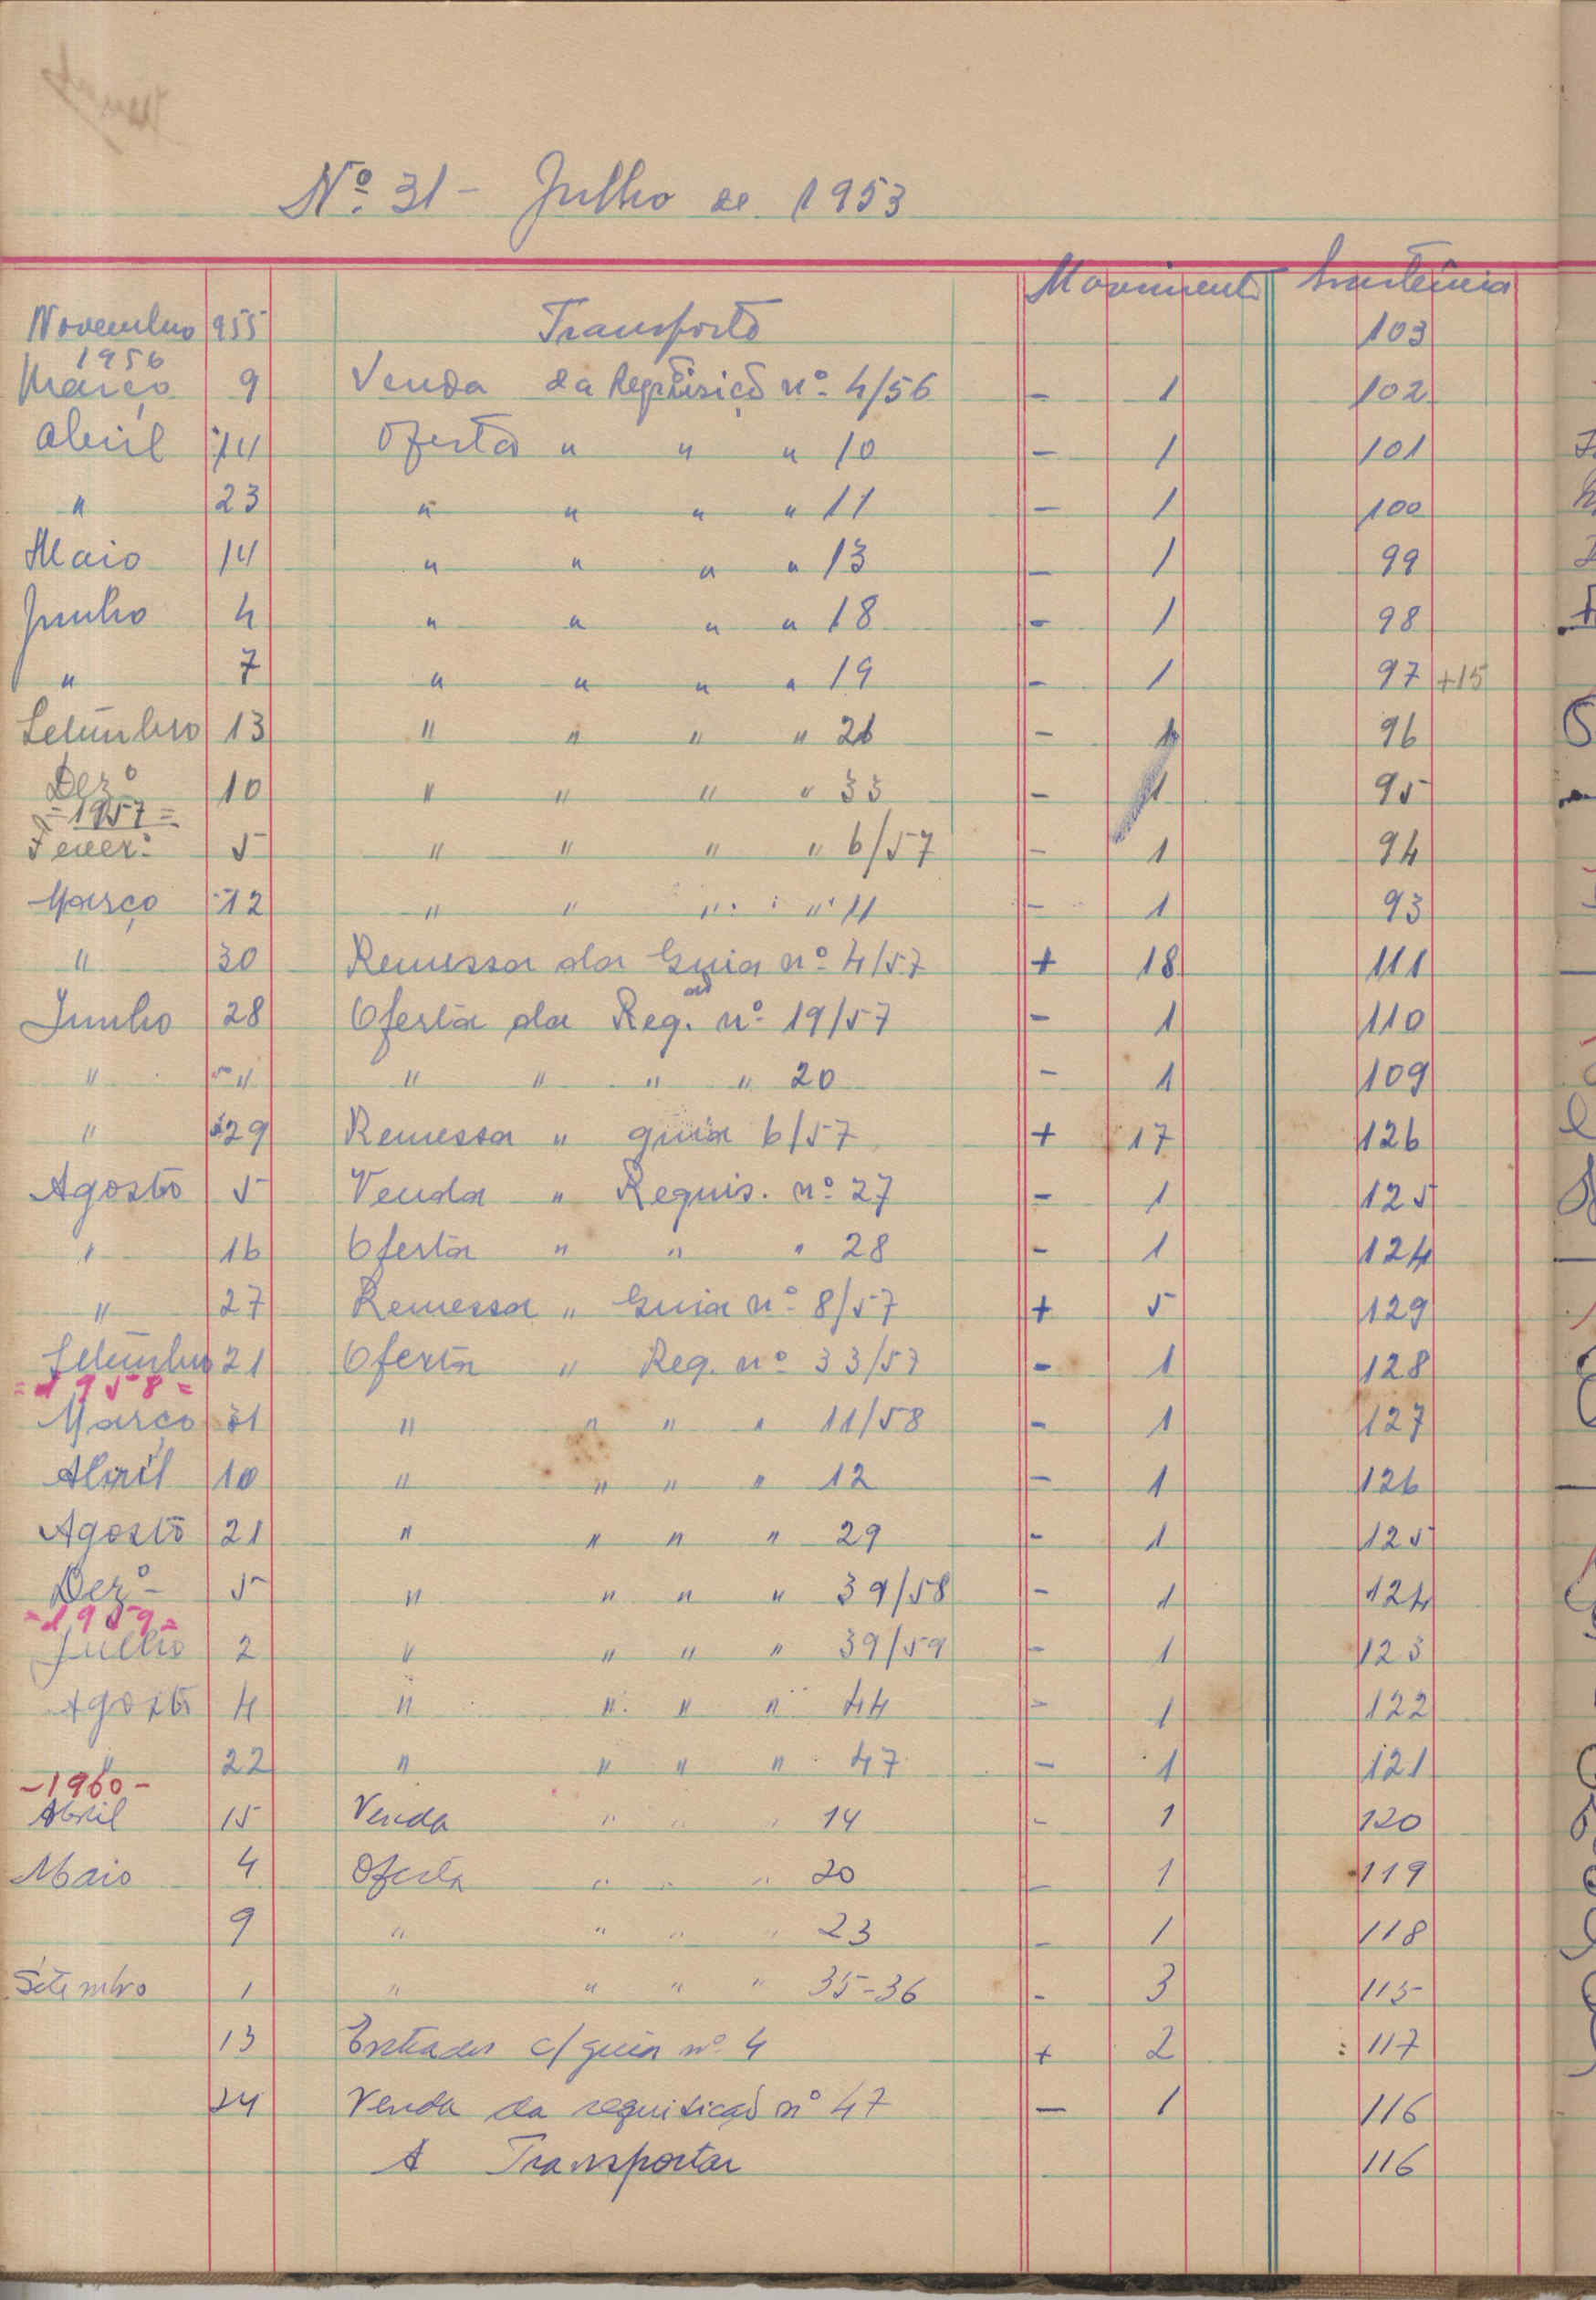 Nº 31 - Julho de 1953
Movimento Existência
Novembro 955 Transporte 103
1956
Março 9 Venda da Requisição nº 4/56 - 1 102
Abril 14 Oferta " " " 10 - 1 101
" 23 " " " " 11 - 1 100
Maio 14 " " " " 13 - 1 99
Junho 4 " " " " 18 - 1 98
" 7 " " " " 19 - 1 97 +15
Setembro 13 " " " " 26 - 1 96
Dezº 10 " " " " 33 - 1 95
=1957=
Feverº 5 " " " " 6/57 - 1 94
Março 12 " " " " 11 - 1 93
" 30 Remessa da Guia nº 4/57 + 18 111
Junho 28 Oferta da Req. nº 19/57 - 1 110
" " " " " " 20 - 1 109
" 29 Remessa " guia 6/57 + 17 126
Agosto 5 Venda " Requis. nº 27 - 1 125
" 16 Oferta " " " 28 - 1 124
" 27 Remessa " Guia nº 8/57 + 5 129
Setembro 21 Oferta " Req. nº 33/57 - 1 128
=1958=
Março 31 " " " " 11/58 - 1 127
Abril 10 " " " " 12 - 1 126
Agosto 21 " " " " 29 - 1 125
Dezº 5 " " " " 39/58 - 1 124
=1959=
Julho 2 " " " " 39/59 - 1 123
Agosto 4 " " " " 44 - 1 122
" 22 " " " " 47 - 1 121
-1960-
Abril 15 Venda " " " 14 - 1 120
Maio 4 Oferta " " " 20 - 1 119
9 " " " " 23 - 1 118
Setembro 1 " " " " 35-36 - 3 115
13 Entrados c/ guia nº 4 + 2 : 117
24 Venda da requisicaõ nº 47 - 1 116
A Transportar 116